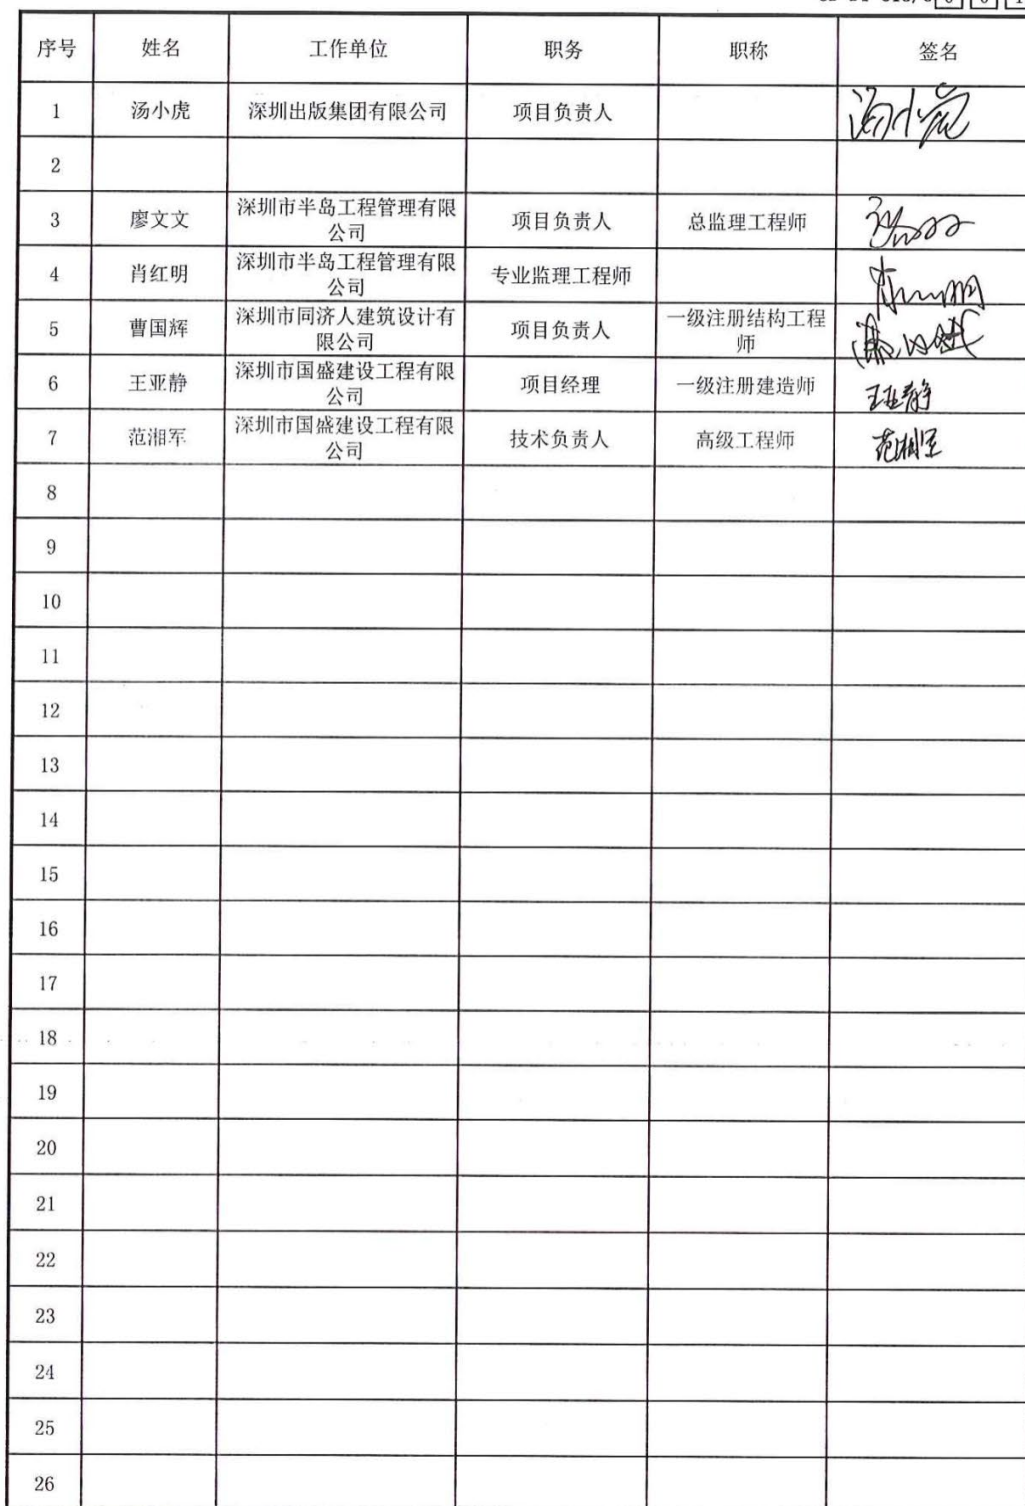 序号 姓名 工作单位 职务 职称 签名
1 汤小虎 深圳出版集团有限公司 项目负责人 汤小虎
2
3 廖文文 深圳市半岛工程管理有限 项目负责人 总监理工程师
公司
4 肖红明 深圳市半岛工程管理有限 专业监理工程师
公司
5 曹国辉 深圳市同济人建筑设计有 项目负责人 一级注册结构工程
限公司 师
6 王亚静 深圳市国盛建设工程有限 项目经理 一级注册建造师 王亚静
公司
7 范湘军 深圳市国盛建设工程有限 技术负责人 高级工程师 范湘军
公司
8
9
10
11
12
13
14
15
16
17
18
19
20
21
22
23
24
25
26